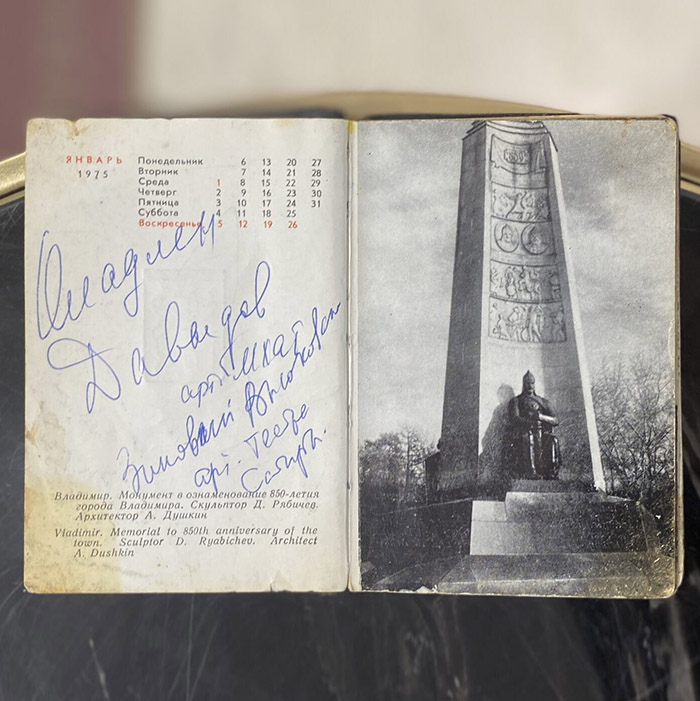 ЯНВАРЬ
1975
Понедельник 6 13 20 27
Вторник 7 14 21 28
Среда 1 8 15 22 29
Четверг 2 9 16 23 30
Пятница 3 10 17 24 31
Суббота 4 11 18 25
Воскресенье 5 12 19 26
Владлен
Давыдов
арт. МХАТ
Зиновий
арт. Театра
Сатиры.
Владимир. Монумент в ознаменование 850-летия
города Владимира. Скульптор Д. Рябичев.
Архитектор А. Душкин
Vladimir. Memorial to 850th anniversary of the
town. Sculptor D. Ryabichev. Architect
A. Dushkin